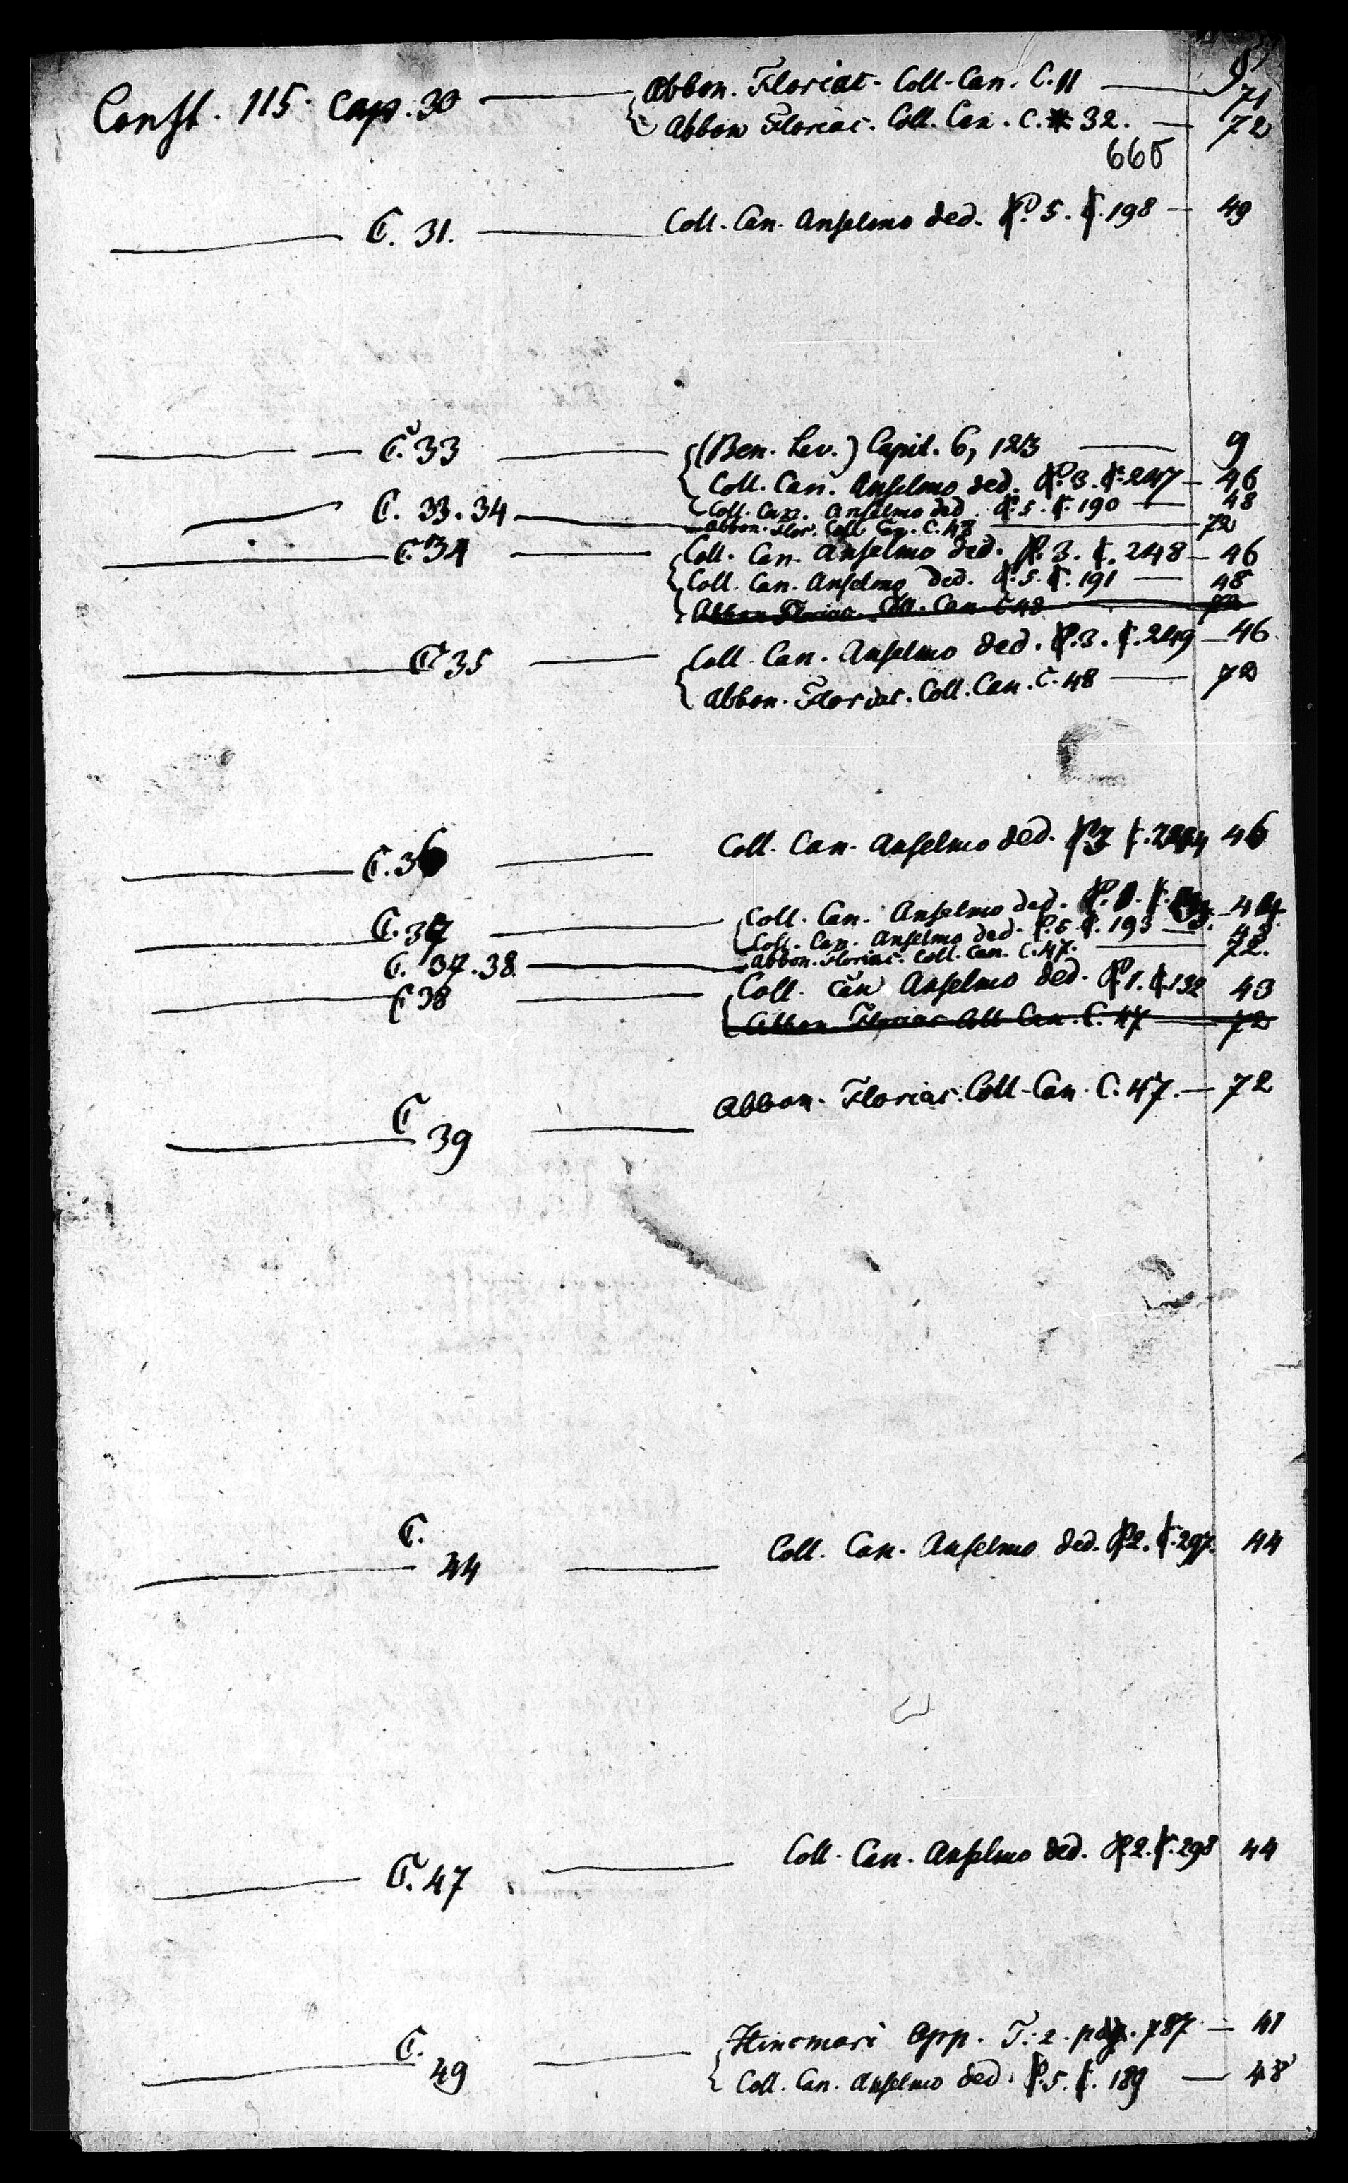 Const. 115. Cap. 30 — Abbon. Floriac. Coll. Can. C. 11 — 71
Abbon Floriac. Coll. Can. C. 32. — 72
665
— C. 31. — Coll. Can. Anselmo ded. P. 5. C. 198 — 49
— C. 33 — (Ben. Lev.) Capit. 6, 123 — 9
Coll. Can. Anselmo ded. P. 3. C. 247 — 46
Coll. Can. Anselmo ded. P. 5. C. 190 — 48
— C. 33. 34 — Abbon. Flor. Coll. Can. C. 48 — 72
— C. 34 — Coll. Can. Anselmo ded. P. 3. C. 248 — 46
Coll. Can. Anselmo ded. P. 5. C. 191 — 48
Abbon Floriac. Coll. Can. C 48 — 72
— C. 35 — Coll. Can. Anselmo ded. P. 3. C. 249 — 46
Abbon. Floriac. Coll. Can. C. 48 — 72
— C. 36 — Coll. Can. Anselmo ded. P. 3 C. 46
— C. 37 — Coll. Can. Anselmo ded. P. C.
Coll. Can. Anselmo ded. P. 5 C. 193 —
— C. 37. 38 — Abbon. Floriac. Coll. Can. C. 47. — 72.
— C 38 — Coll. Can Anselmo ded. P. 1. C. 132 43
Abbon Floriac Coll Can. C. 47 — 72
— C 39 — Abbon. Floriac. Coll. Can. C. 47. — 72
— C. 44 — Coll. Can. Anselmo ded. P. 2. C. 297. 44
— C. 47 — Coll. Can. Anselmo ded. P. 2. C. 298 44
— C. 49 — Hincmari Opp. T. 2. pag. 787 — 41
Coll. Can. Anselmo ded. P. 5. C. 189 — 48